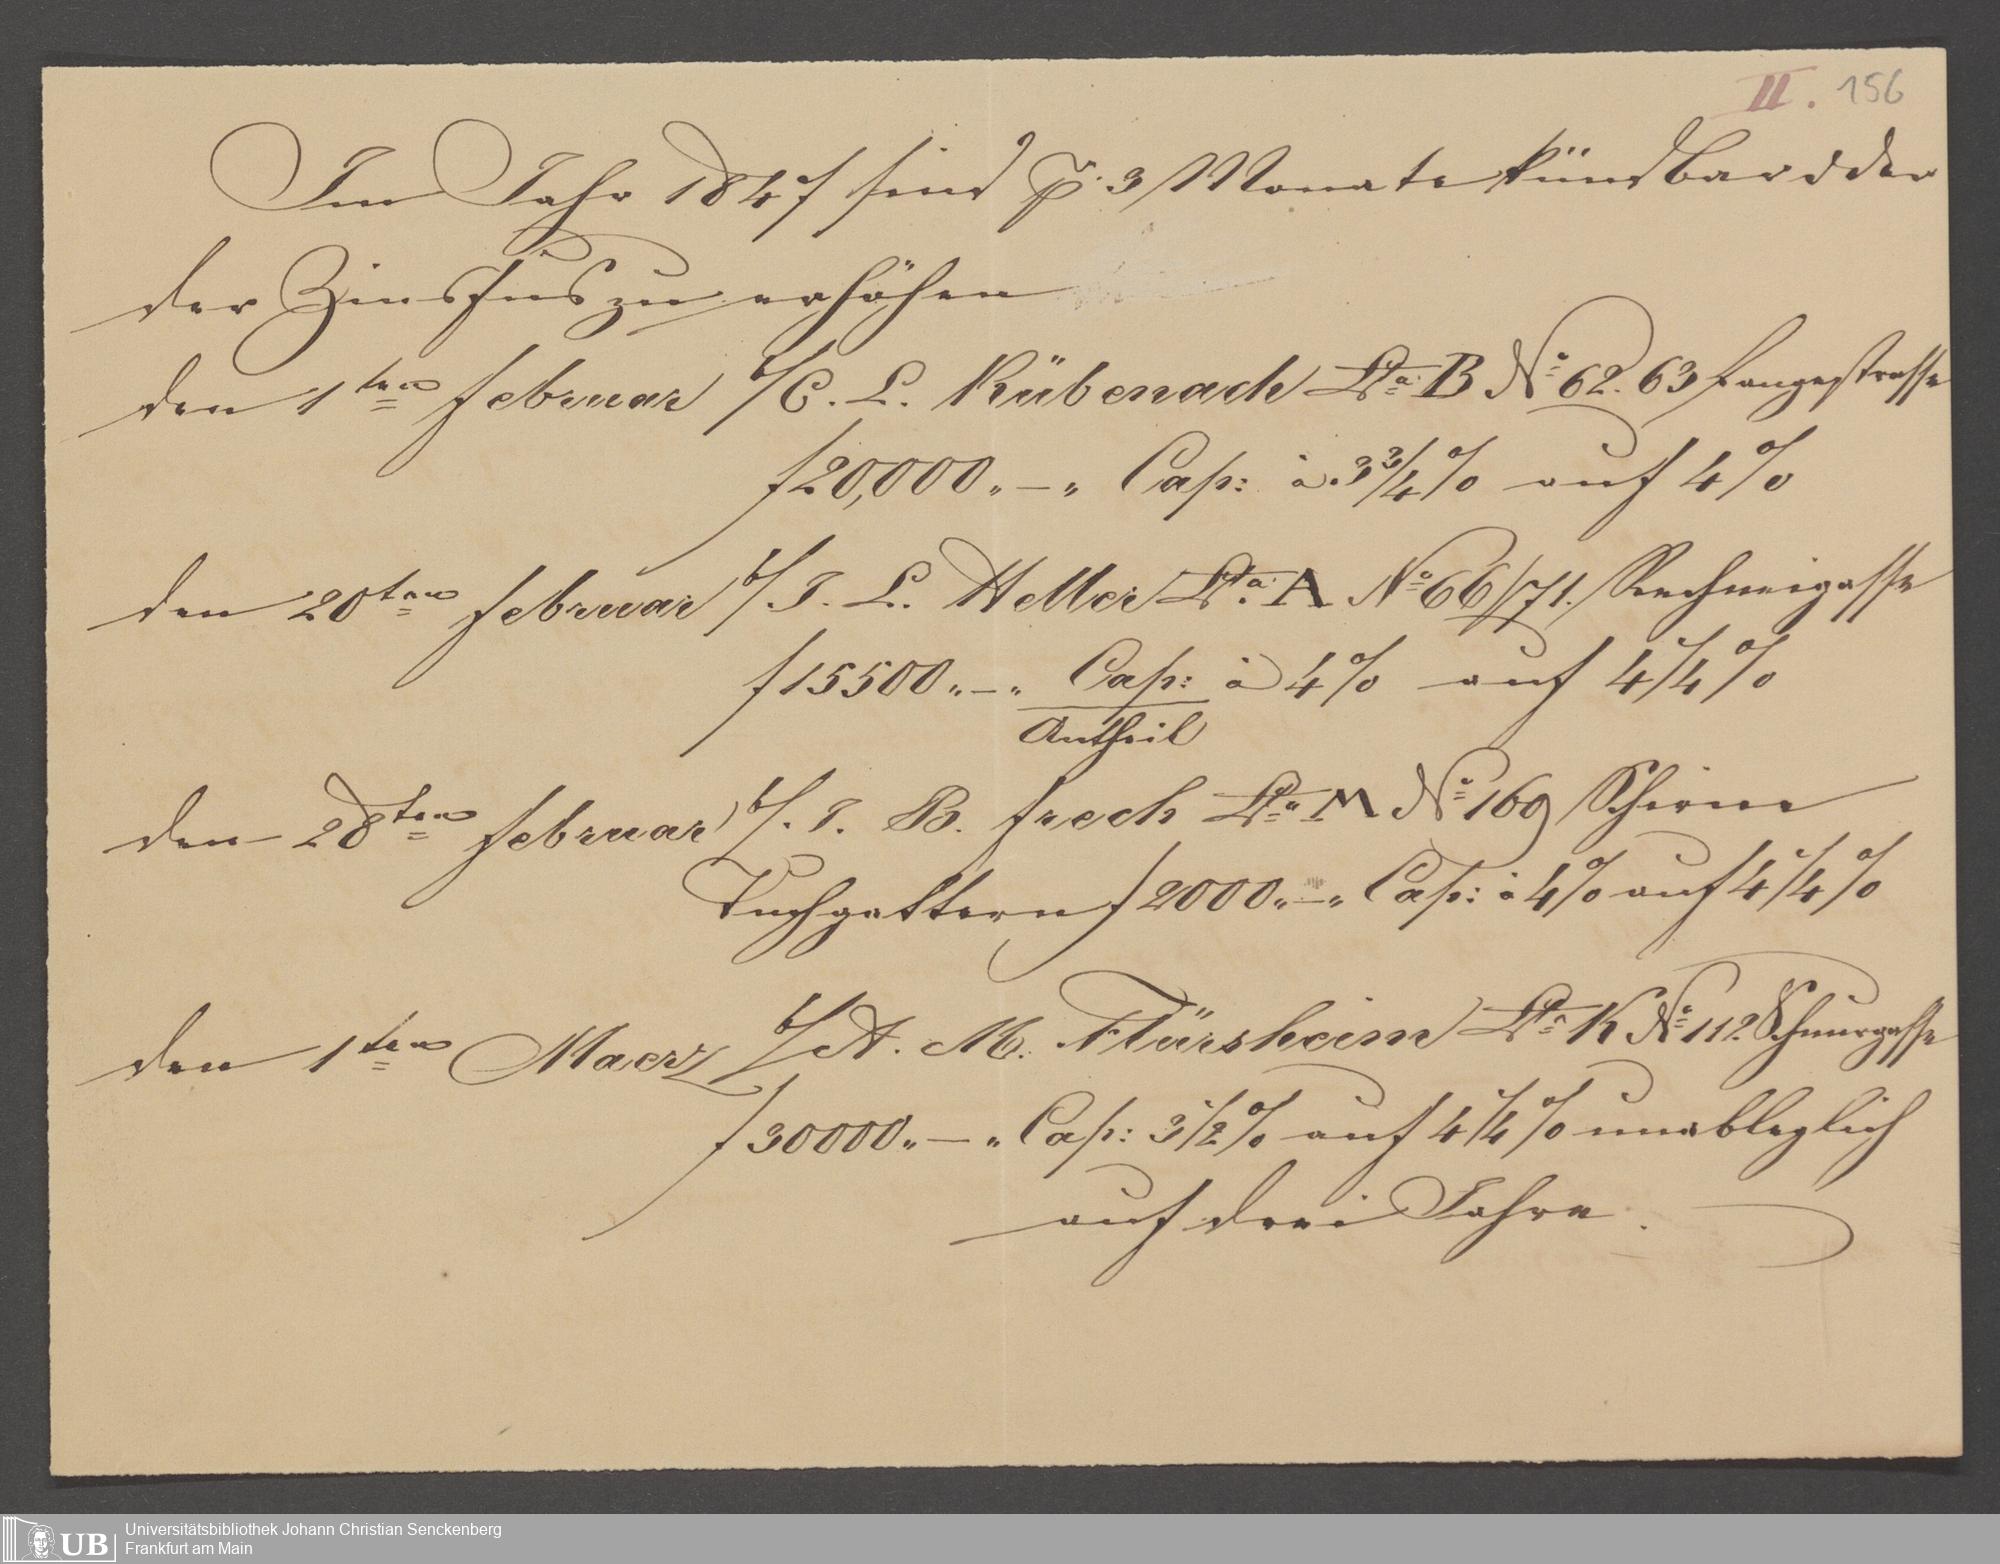 II. 156
Im Jahr 1847 sind p. 3 Monate kündbar oder
der Zinsfus zu erhöhen
den 1ten Februar b/ C. L. Rübenach Lta. B No 62. 63 Langestrasse
f 20,000 „ — „ Cap: à 3 3/4 % auf 4 %
den 20ten Februar b/. J. L. Heller Lta. A No 66/71. Rechneigasse
f 15500 „ — „ Cap: à 4 % auf 4 1/4 %
Antheil
den 28ten Februar b/. J. B. Frech Lta. M No 169 Schirne
Tuchgattern f 2000 „ — „ Cap: à 4 % auf 4 1/4 %
den 1ten Maerz b/ A. M. Flürsheim Lta. K No 112. Schnurgasse
f 30000 „ — „ Cap: 3 1/2 % auf 4 1/4 % unableglich
auf drei Jahre.
UB
Universitätsbibliothek Johann Christian Senckenberg
Frankfurt am Main